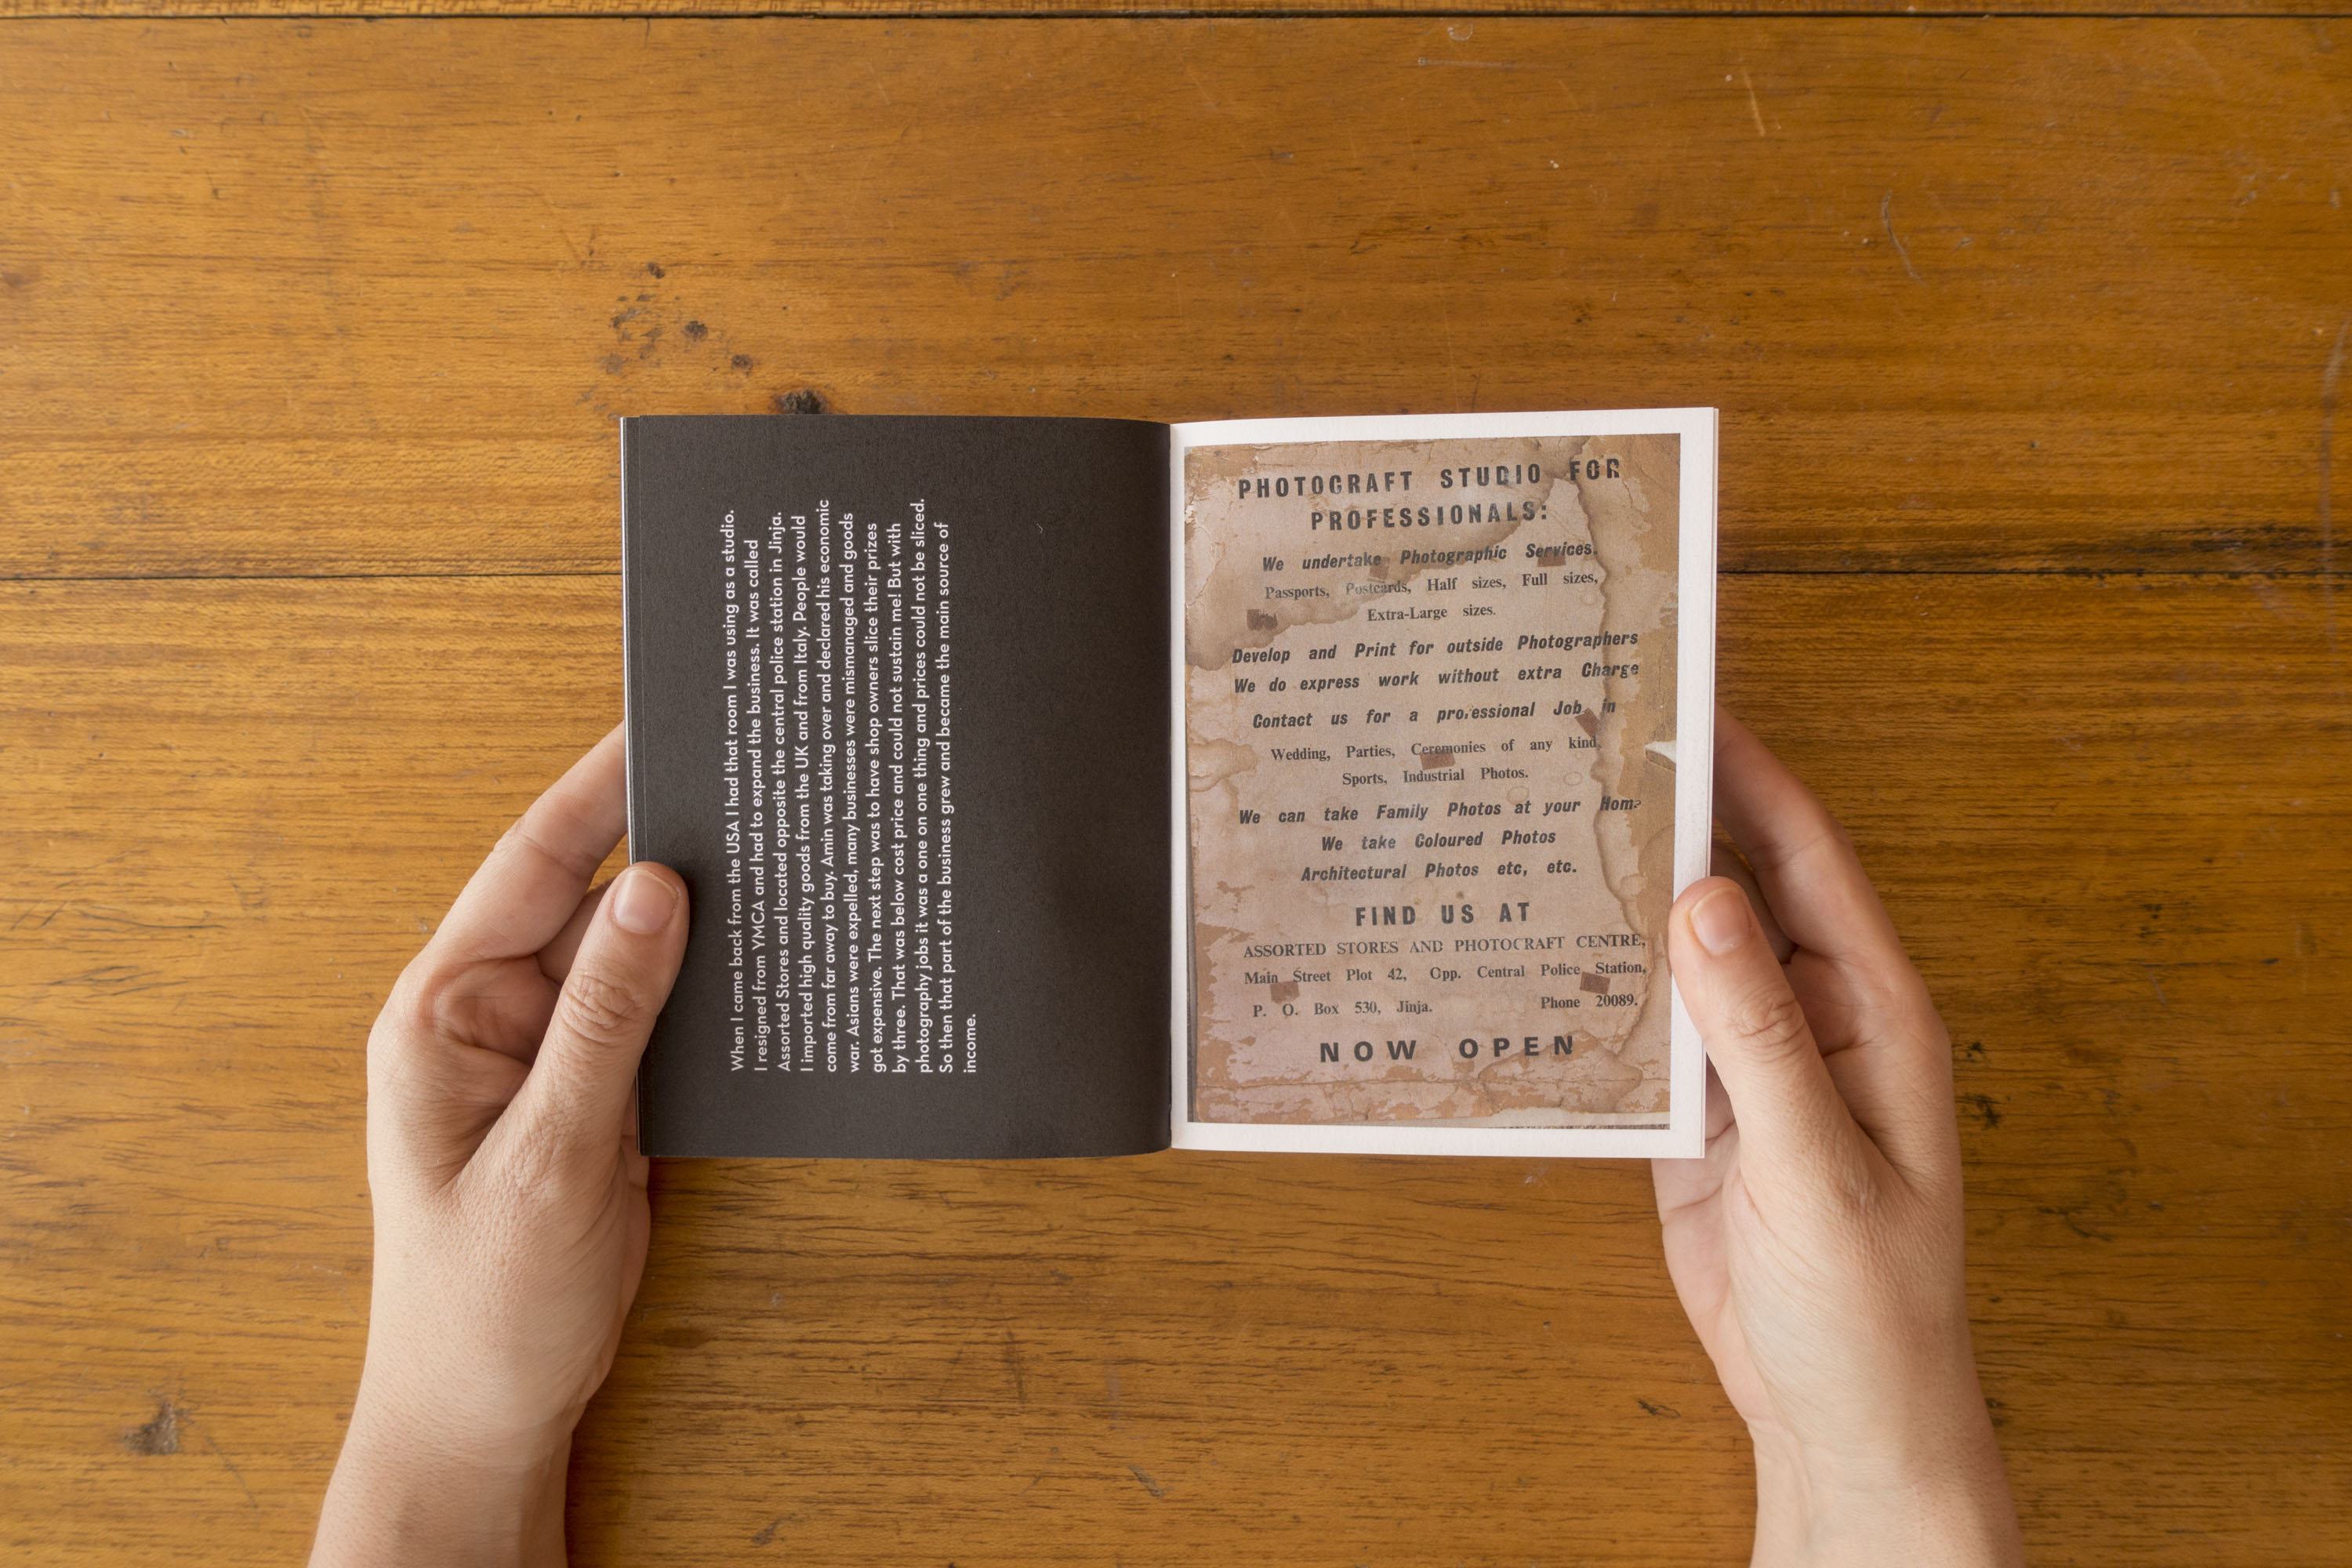 When I came back from the USA I had that room I was using as a studio.
I resigned from YMCA and had to expand the business. It was called
Assorted Stores and located opposite the central police station in Jinja.
I imported high quality goods from the UK and from Italy. People would
come from far away to buy. Amin was taking over and declared his economic
war. Asians were expelled, many businesses were mismanaged and goods
got expensive. The next step was to have shop owners slice their prizes
by three. That was below cost price and could not sustain me! But with
photography jobs it was a one on one thing and prices could not be sliced.
So then that part of the business grew and became the main source of
income.
PHOTOGRAFT STUDIO FOR
PROFESSIONALS:
We undertake Photographic Services.
Passports, Postcards, Half sizes, Full sizes,
Extra-Large sizes.
Develop and Print for outside Photographers
We do express work without extra Charge
Contact us for a professional Job in
Wedding, Parties, Ceremonies of any kind,
Sports, Industrial Photos.
We can take Family Photos at your Home
We take Coloured Photos
Architectural Photos etc, etc.
FIND US AT
ASSORTED STORES AND PHOTOCRAFT CENTRE,
Main Street Plot 42, Opp. Central Police Station,
P. O. Box 530, Jinja. Phone 20089.
NOW OPEN